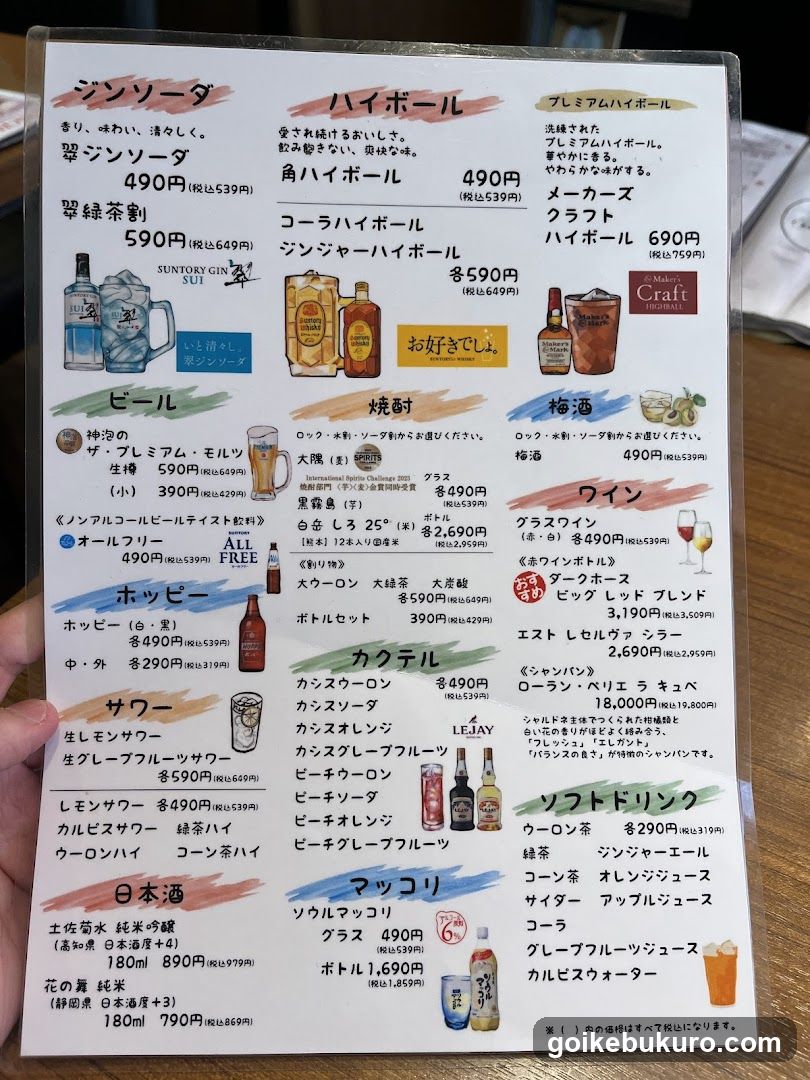 ジンソーダ
香り、味わい、清々しく。
翠ジンソーダ
490円(税込539円)
翠緑茶割
590円(税込649円)
SUNTORY GIN
SUI 翠
SUI
翠
いと清々し。
翠ジンソーダ
ハイボール
愛され続けるおいしさ。
飲み飽きない、爽快な味。
角ハイボール 490円
(税込539円)
コーラハイボール
ジンジャーハイボール
各590円
(税込649円)
Suntory
Whisky
お好きでしょ。
SUNTORY WHISKY
プレミアムハイボール
洗練された
プレミアムハイボール。
華やかに香る。
やわらかな味がする。
メーカーズ
クラフト
ハイボール 690円
(税込759円)
Maker's
Craft
HIGHBALL
Maker's
Mark
Maker's
Mark
ビール
神泡の
ザ・プレミアム・モルツ
生樽 590円(税込649円)
(小) 390円(税込429円)
《ノンアルコールビールテイスト飲料》
オールフリー
490円(税込539円)
SUNTORY
ALL
FREE
オールフリー
ホッピー
ホッピー (白・黒)
各490円(税込539円)
中・外 各290円(税込319円)
サワー
生レモンサワー
生グレープフルーツサワー
各590円(税込649円)
レモンサワー 各490円(税込539円)
カルピスサワー 緑茶ハイ
ウーロンハイ コーン茶ハイ
日本酒
土佐菊水 純米吟醸
(高知県 日本酒度+4)
180ml 890円(税込979円)
花の舞 純米
(静岡県 日本酒度+3)
180ml 790円(税込869円)
焼酎
ロック・水割・ソーダ割からお選びください。
大隅 (麦)
SPIRITS
International Spirits Challenge 2023
焼酎部門 〈芋〉〈麦〉金賞同時受賞
黒霧島 (芋)
白岳 しろ 25° (米)
【熊本】12本入り国産米
グラス
各490円
(税込539円)
ボトル
各2,690円
(税込2,959円)
《割り物》
大ウーロン 大緑茶 大炭酸
各590円(税込649円)
ボトルセット 390円(税込429円)
カクテル
カシスウーロン 各490円
(税込539円)
カシスソーダ
カシスオレンジ
カシスグレープフルーツ
ピーチウーロン
ピーチソーダ
ピーチオレンジ
ピーチグレープフルーツ
LEJAY
マッコリ
ソウルマッコリ
グラス 490円
(税込539円)
ボトル 1,690円
(税込1,859円)
6%
ソウル
マッコリ
梅酒
ロック・水割・ソーダ割からお選びください。
梅酒 490円(税込539円)
ワイン
グラスワイン
(赤・白) 各490円(税込539円)
《赤ワインボトル》
おすすめ
ダークホース
ビッグ レッド ブレンド
3,190円(税込3,509円)
エスト レセルヴァ シラー
2,690円(税込2,959円)
《シャンパン》
ローラン・ペリエ ラ キュベ
18,000円(税込19,800円)
シャルドネ主体でつくられた柑橘類と
白い花の香りがほどよく絡み合う、
「フレッシュ」「エレガント」
「バランスの良さ」が特徴のシャンパンです。
ソフトドリンク
ウーロン茶 各290円(税込319円)
緑茶 ジンジャーエール
コーン茶 オレンジジュース
サイダー アップルジュース
コーラ
グレープフルーツジュース
カルピスウォーター
※( )内の価格はすべて税込になります。
goikebukuro.com